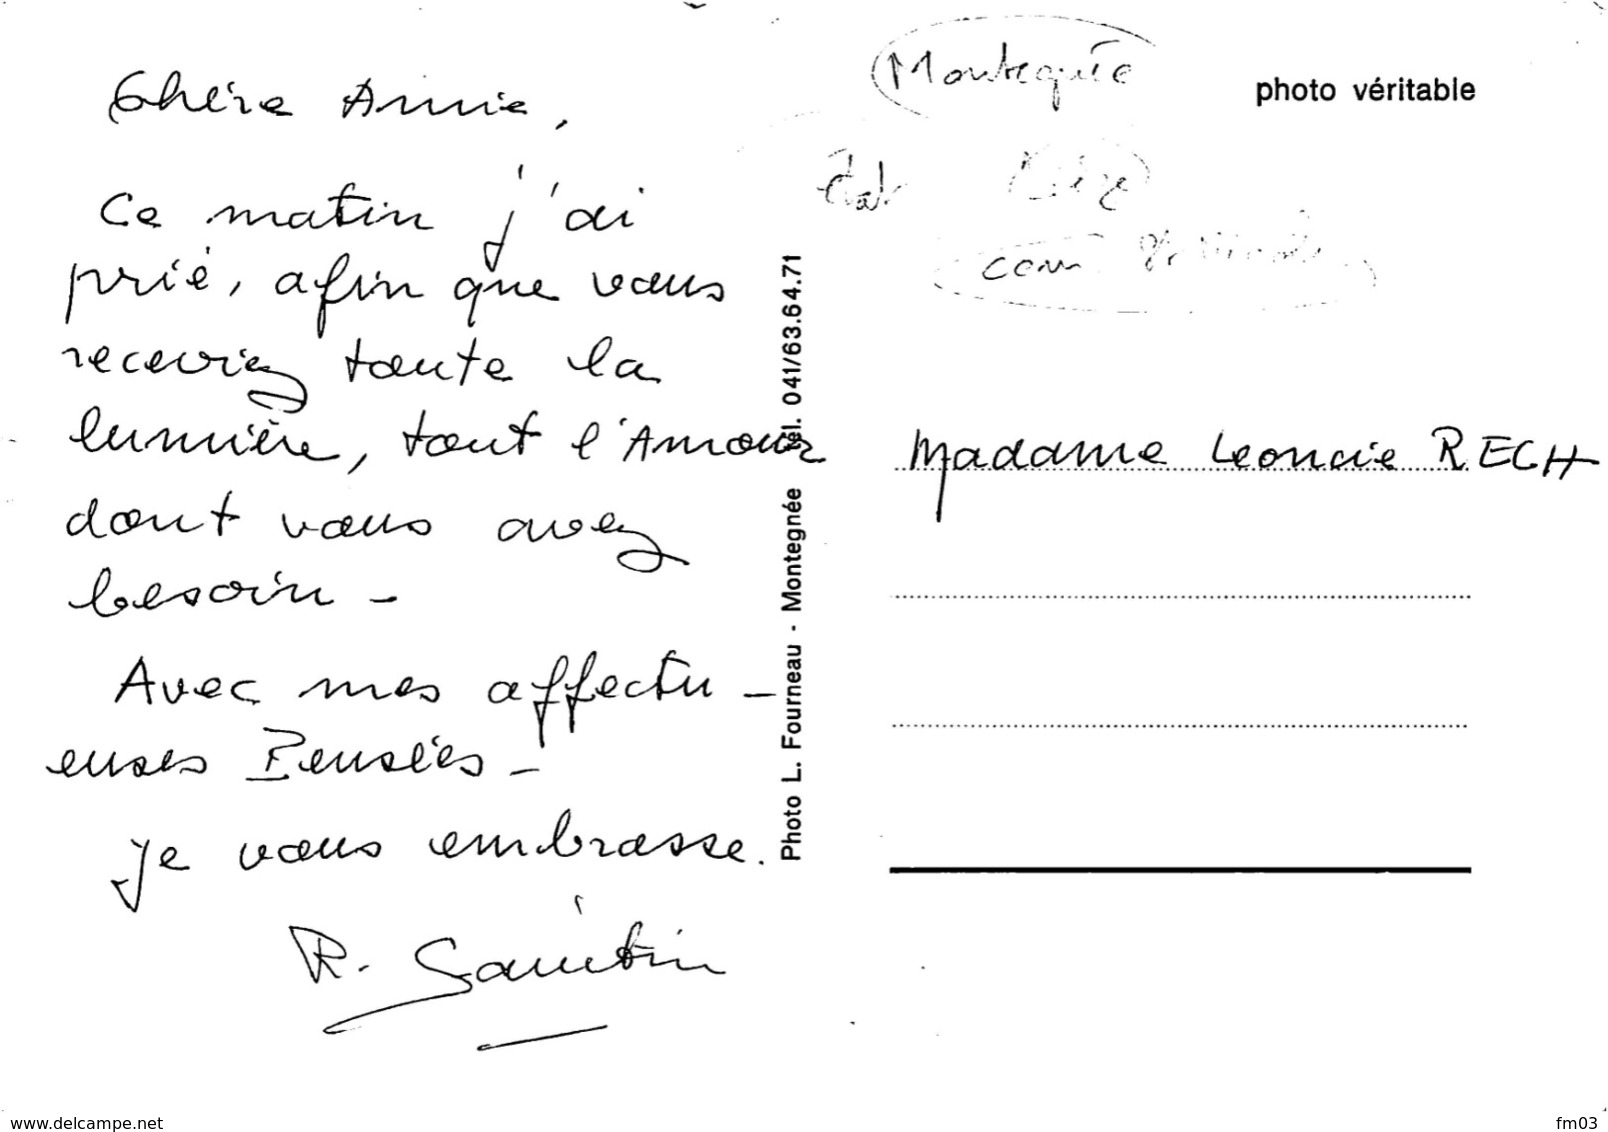 Chère Annie,
Ce matin j'ai
prié, afin que vous
receviez toute la
lumière, tout l'Amour
dont vous avez
besoin -
Avec mes affectu -
euses Pensées -
je vous embrasse.
R.
Photo L. Fourneau - Montegnée Tél. 041/63.64.71
photo véritable
Liège
Madame Leoncie RECH
www.delcampe.net
fm03